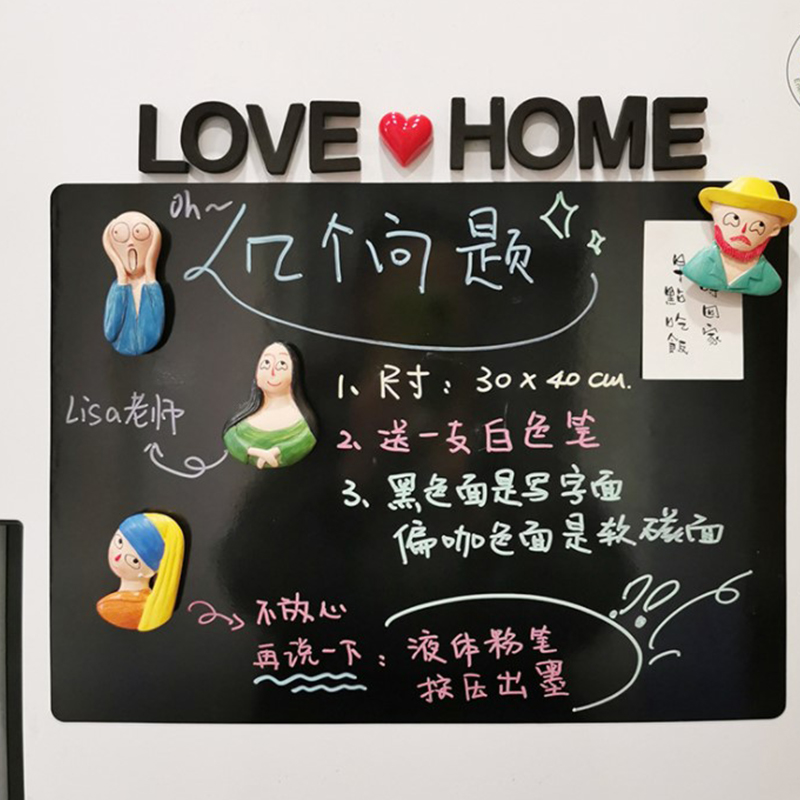 LOVE HOME
Oh~
几个问题
1、尺寸：30×40cm.
Lisa老师
2、送一支白色笔
3、黑色面是写字面
偏咖色面是软磁面
早點吃飯
回家
不放心
再说一下：液体粉笔
按压出墨